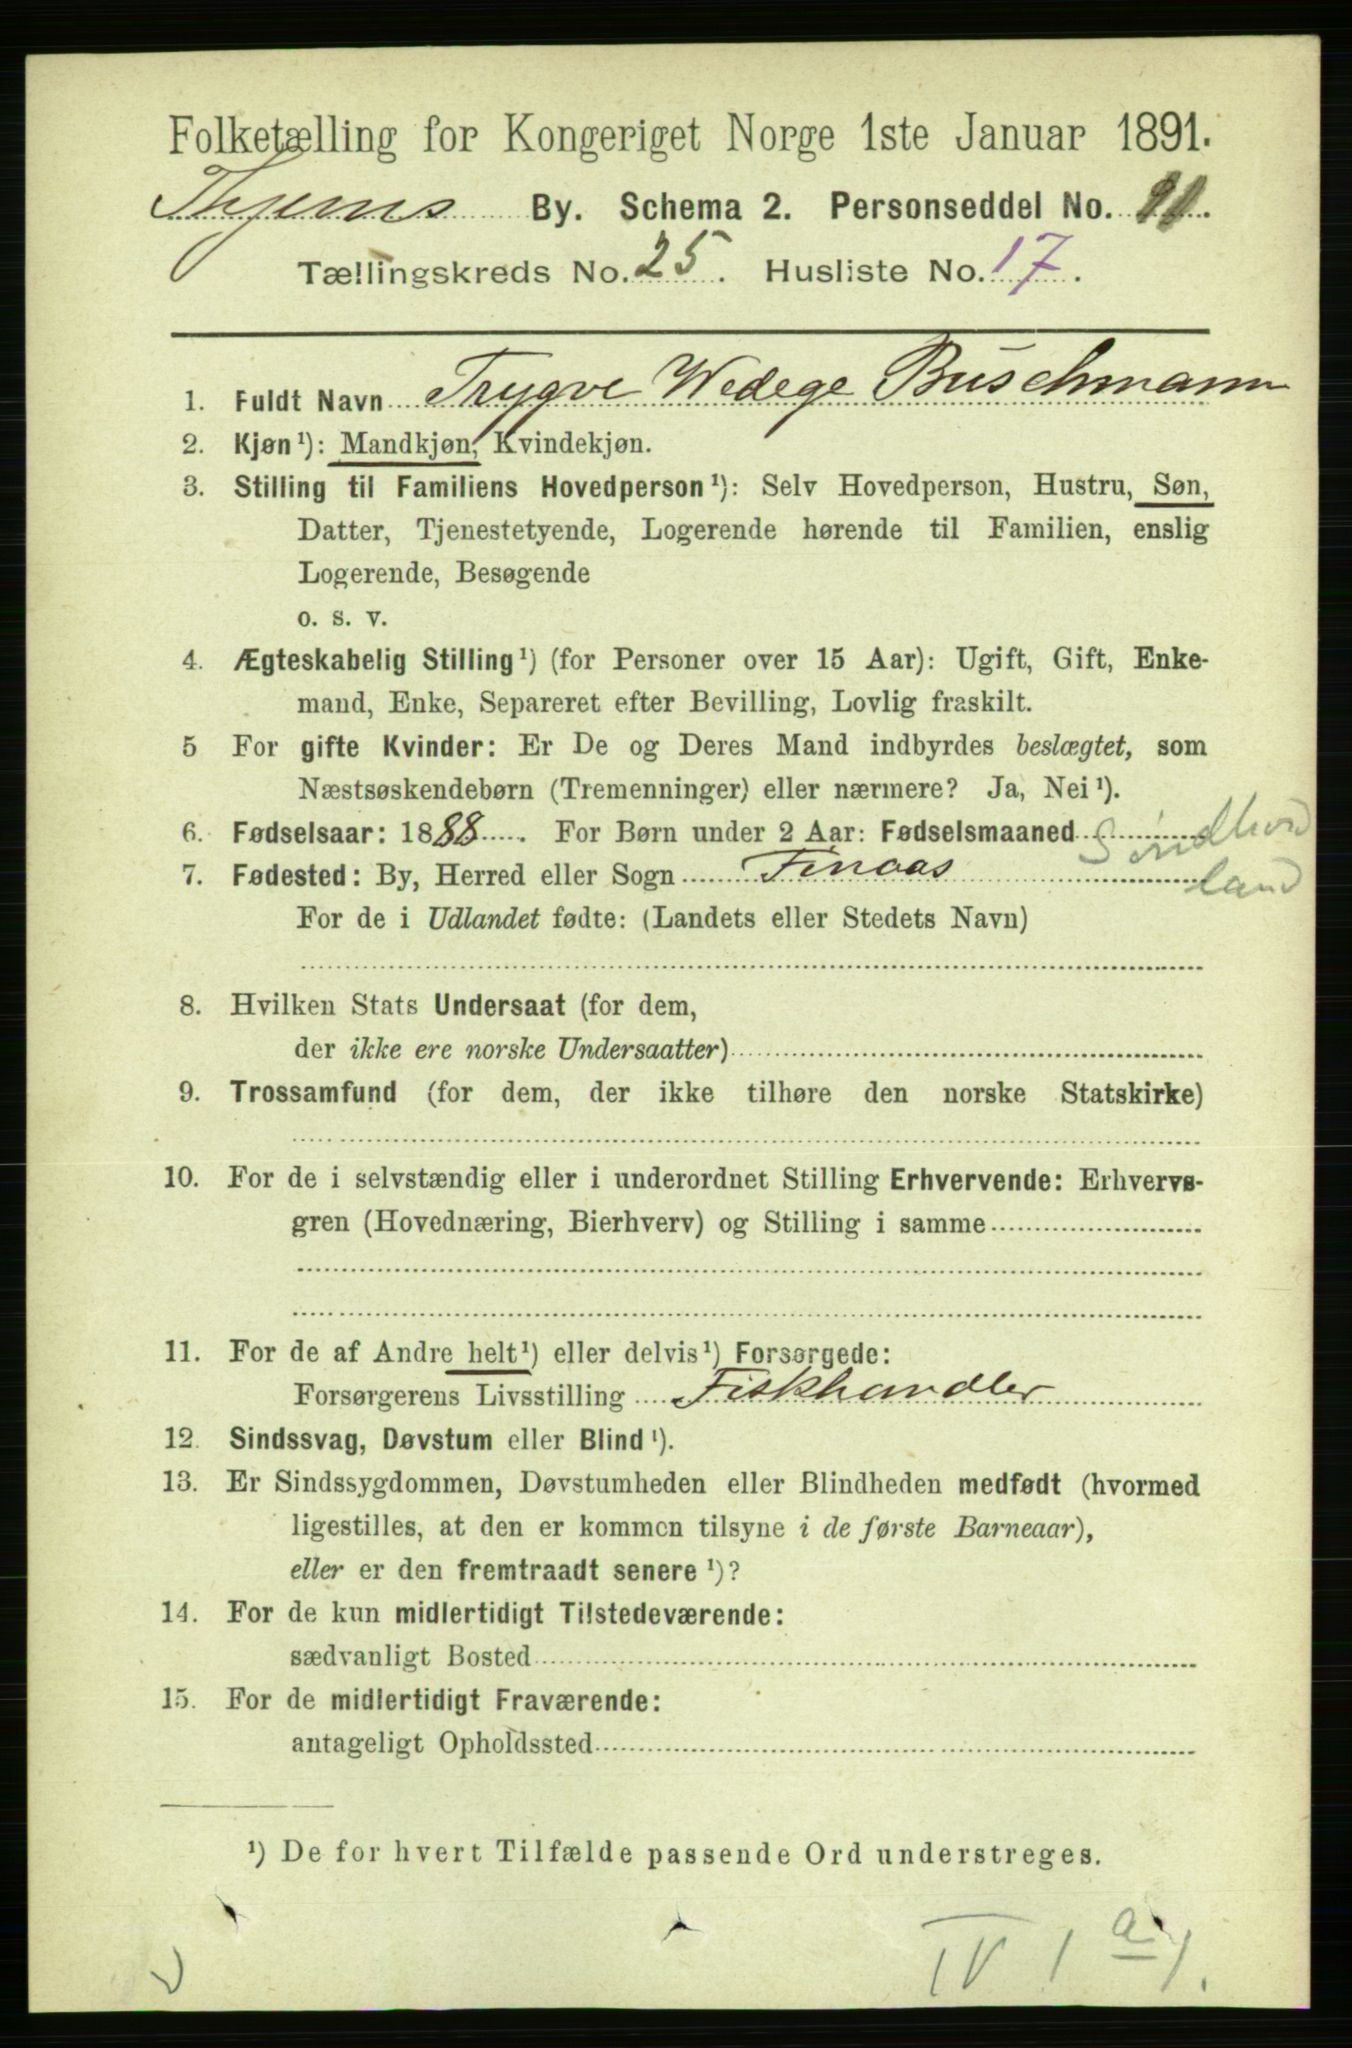 Folketælling for Kongeriget Norge 1ste Januar 1891.
Thjems By. Schema 2. Personseddel No.
Tællingskreds No. 25. Husliste No. 17.
1. Fuldt Navn Trygve Wedege Buschmann
2. Kjøn¹): Mandkjøn, Kvindekjøn.
3. Stilling til Familiens Hovedperson¹): Selv Hovedperson, Hustru, Søn,
Datter, Tjenestetyende, Logerende hørende til Familien, enslig
Logerende, Besøgende
o. s. v.
4. Ægteskabelig Stilling¹) (for Personer over 15 Aar): Ugift, Gift, Enke-
mand, Enke, Separeret efter Bevilling, Lovlig fraskilt.
5 For gifte Kvinder: Er De og Deres Mand indbyrdes beslægtet, som
Næstsøskendebørn (Tremenninger) eller nærmere? Ja, Nei¹).
6. Fødselsaar: 1888. For Børn under 2 Aar: Fødselsmaaned
7. Fødested: By, Herred eller Sogn Finaas Søndhord
land
For de i Udlandet fødte: (Landets eller Stedets Navn)
8. Hvilken Stats Undersaat (for dem,
der ikke ere norske Undersaatter)
9. Trossamfund (for dem, der ikke tilhøre den norske Statskirke)
10. For de i selvstændig eller i underordnet Stilling Erhvervende: Erhvervs-
gren (Hovednæring, Bierhverv) og Stilling i samme
11. For de af Andre helt¹) eller delvis¹) Forsørgede:
Forsørgerens Livsstilling Fiskhandler
12. Sindssvag, Døvstum eller Blind¹).
13. Er Sindssygdommen, Døvstumheden eller Blindheden medfødt (hvormed
ligestilles, at den er kommen tilsyne i de første Barneaar),
eller er den fremtraadt senere¹)?
14. For de kun midlertidigt Tilstedeværende:
sædvanligt Bosted
15. For de midlertidigt Fraværende:
antageligt Opholdssted
¹) De for hvert Tilfælde passende Ord understreges.
IV 1 a 1.